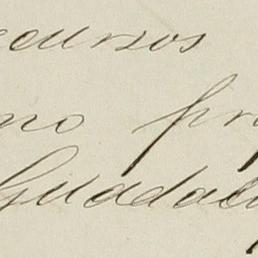 ecursos
no pr
Guadal